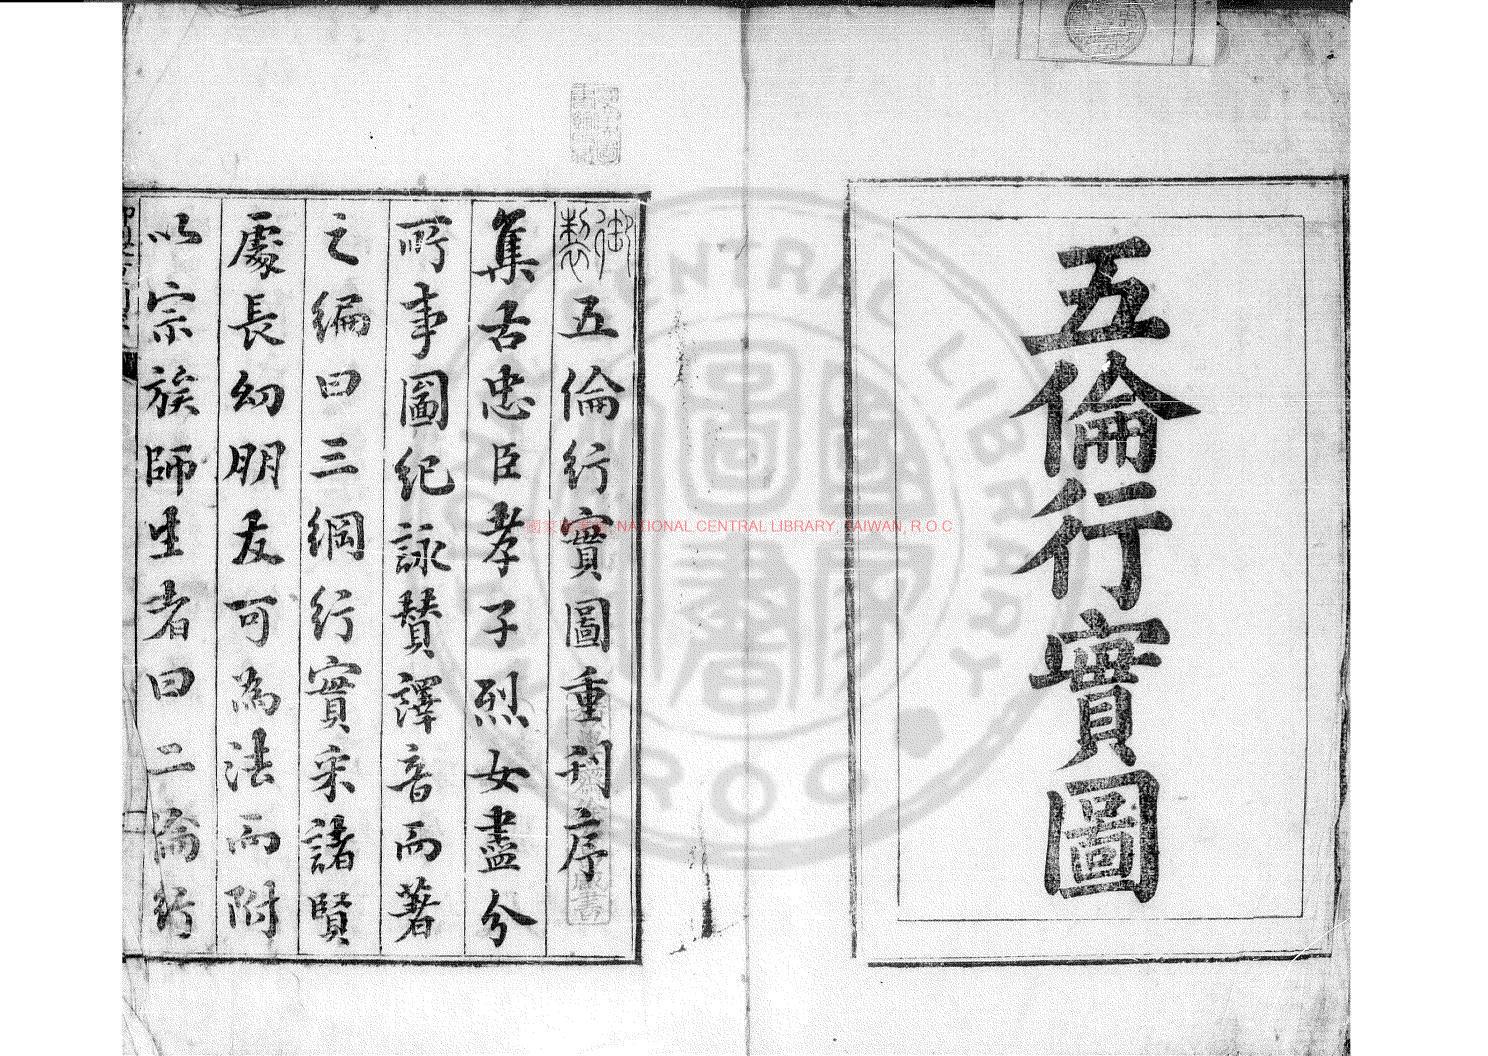 五倫行實圖
御製五倫行實圖重刊序
集古忠臣孝子烈女盡分
所事圖紀詠贊譯音而著
之編曰三綱行實采諸賢
處長幼朋友可為法而附
以宗族師生者曰二倫行
NATIONAL CENTRAL LIBRARY, TAIWAN, R.O.C
CENTRAL LIBRARY
R O C
國家圖書